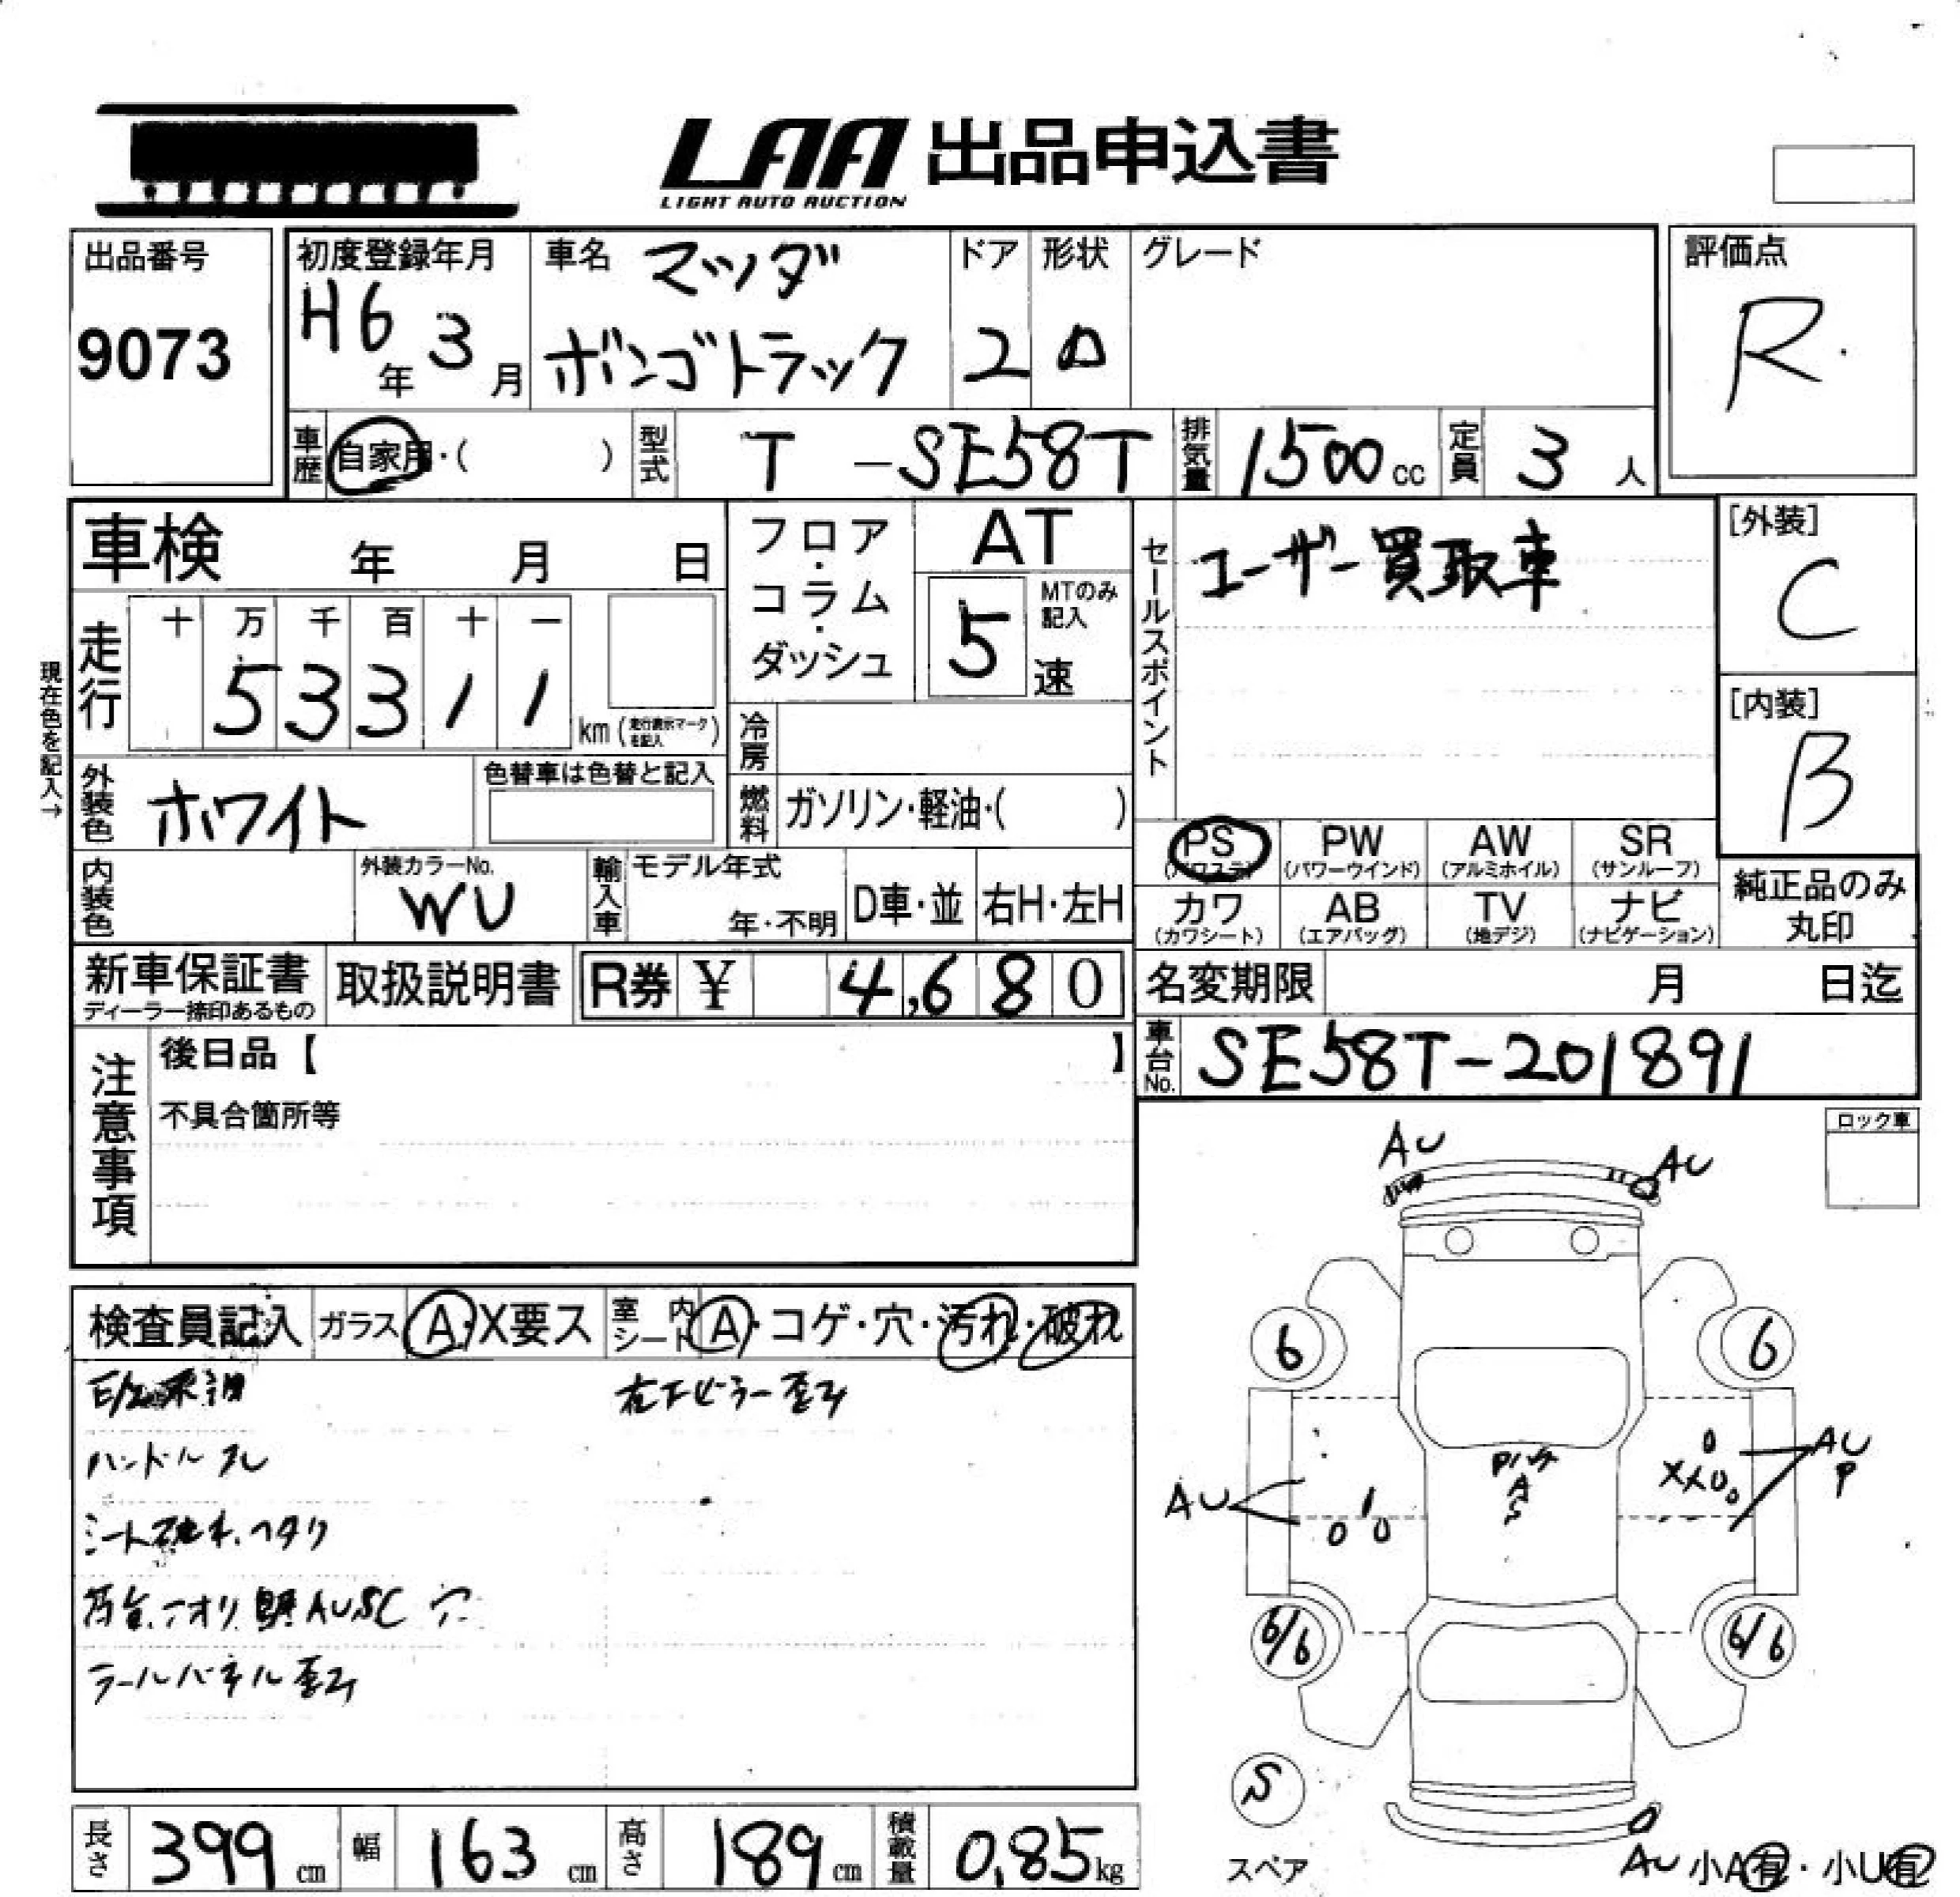 LAA 出品申込書
LIGHT AUTO AUCTION
出品番号
9073
初度登録年月
H6年 3月
車名 マツダ
ボンゴトラック
ドア
2
形状
グレード
評価点
R
車歴 自家用・( )
型式 T-SE58T
排気量 1500cc
定員 3人
車検 年 月 日
フロア・コラム・ダッシュ
AT
5速
MTのみ記入
セールスポイント
ユーザー買取車
[外装]
C
[内装]
B
現在色を記入→
走行
十 万 千 百 十 一
5 3 3 1 1 km (走行表示マークを記入)
冷房
外装色 ホワイト
色替車は色替と記入
燃料 ガソリン・軽油・( )
PS (パワステ)
PW (パワーウインド)
AW (アルミホイル)
SR (サンルーフ)
内装色
外装カラーNo.
WU
輸入車 モデル年式
年・不明
D車・並
右H・左H
カワ (カワシート)
AB (エアバッグ)
TV (地デジ)
ナビ (ナビゲーション)
純正品のみ丸印
新車保証書
ディーラー捺印あるもの
取扱説明書
R券 ¥ 4,680
名変期限 月 日迄
車台No. SE58T-201891
注意事項
後日品【 】
不具合箇所等
ロック車
AU
AU
検査員記入
ガラス A・X要ス
室内シート A・コゲ・穴・汚れ・破れ
右下ピラー歪み
ハンドルスレ
シート破れ、ヘタリ
荷台、アオリ AUSC 穴
テールパネル歪み
6
6
AU
A
S
AU
P
6/6
6/6
S
スペア
AU 小A有・小U有
長さ 399cm
幅 163cm
高さ 189cm
積載量 0,85kg